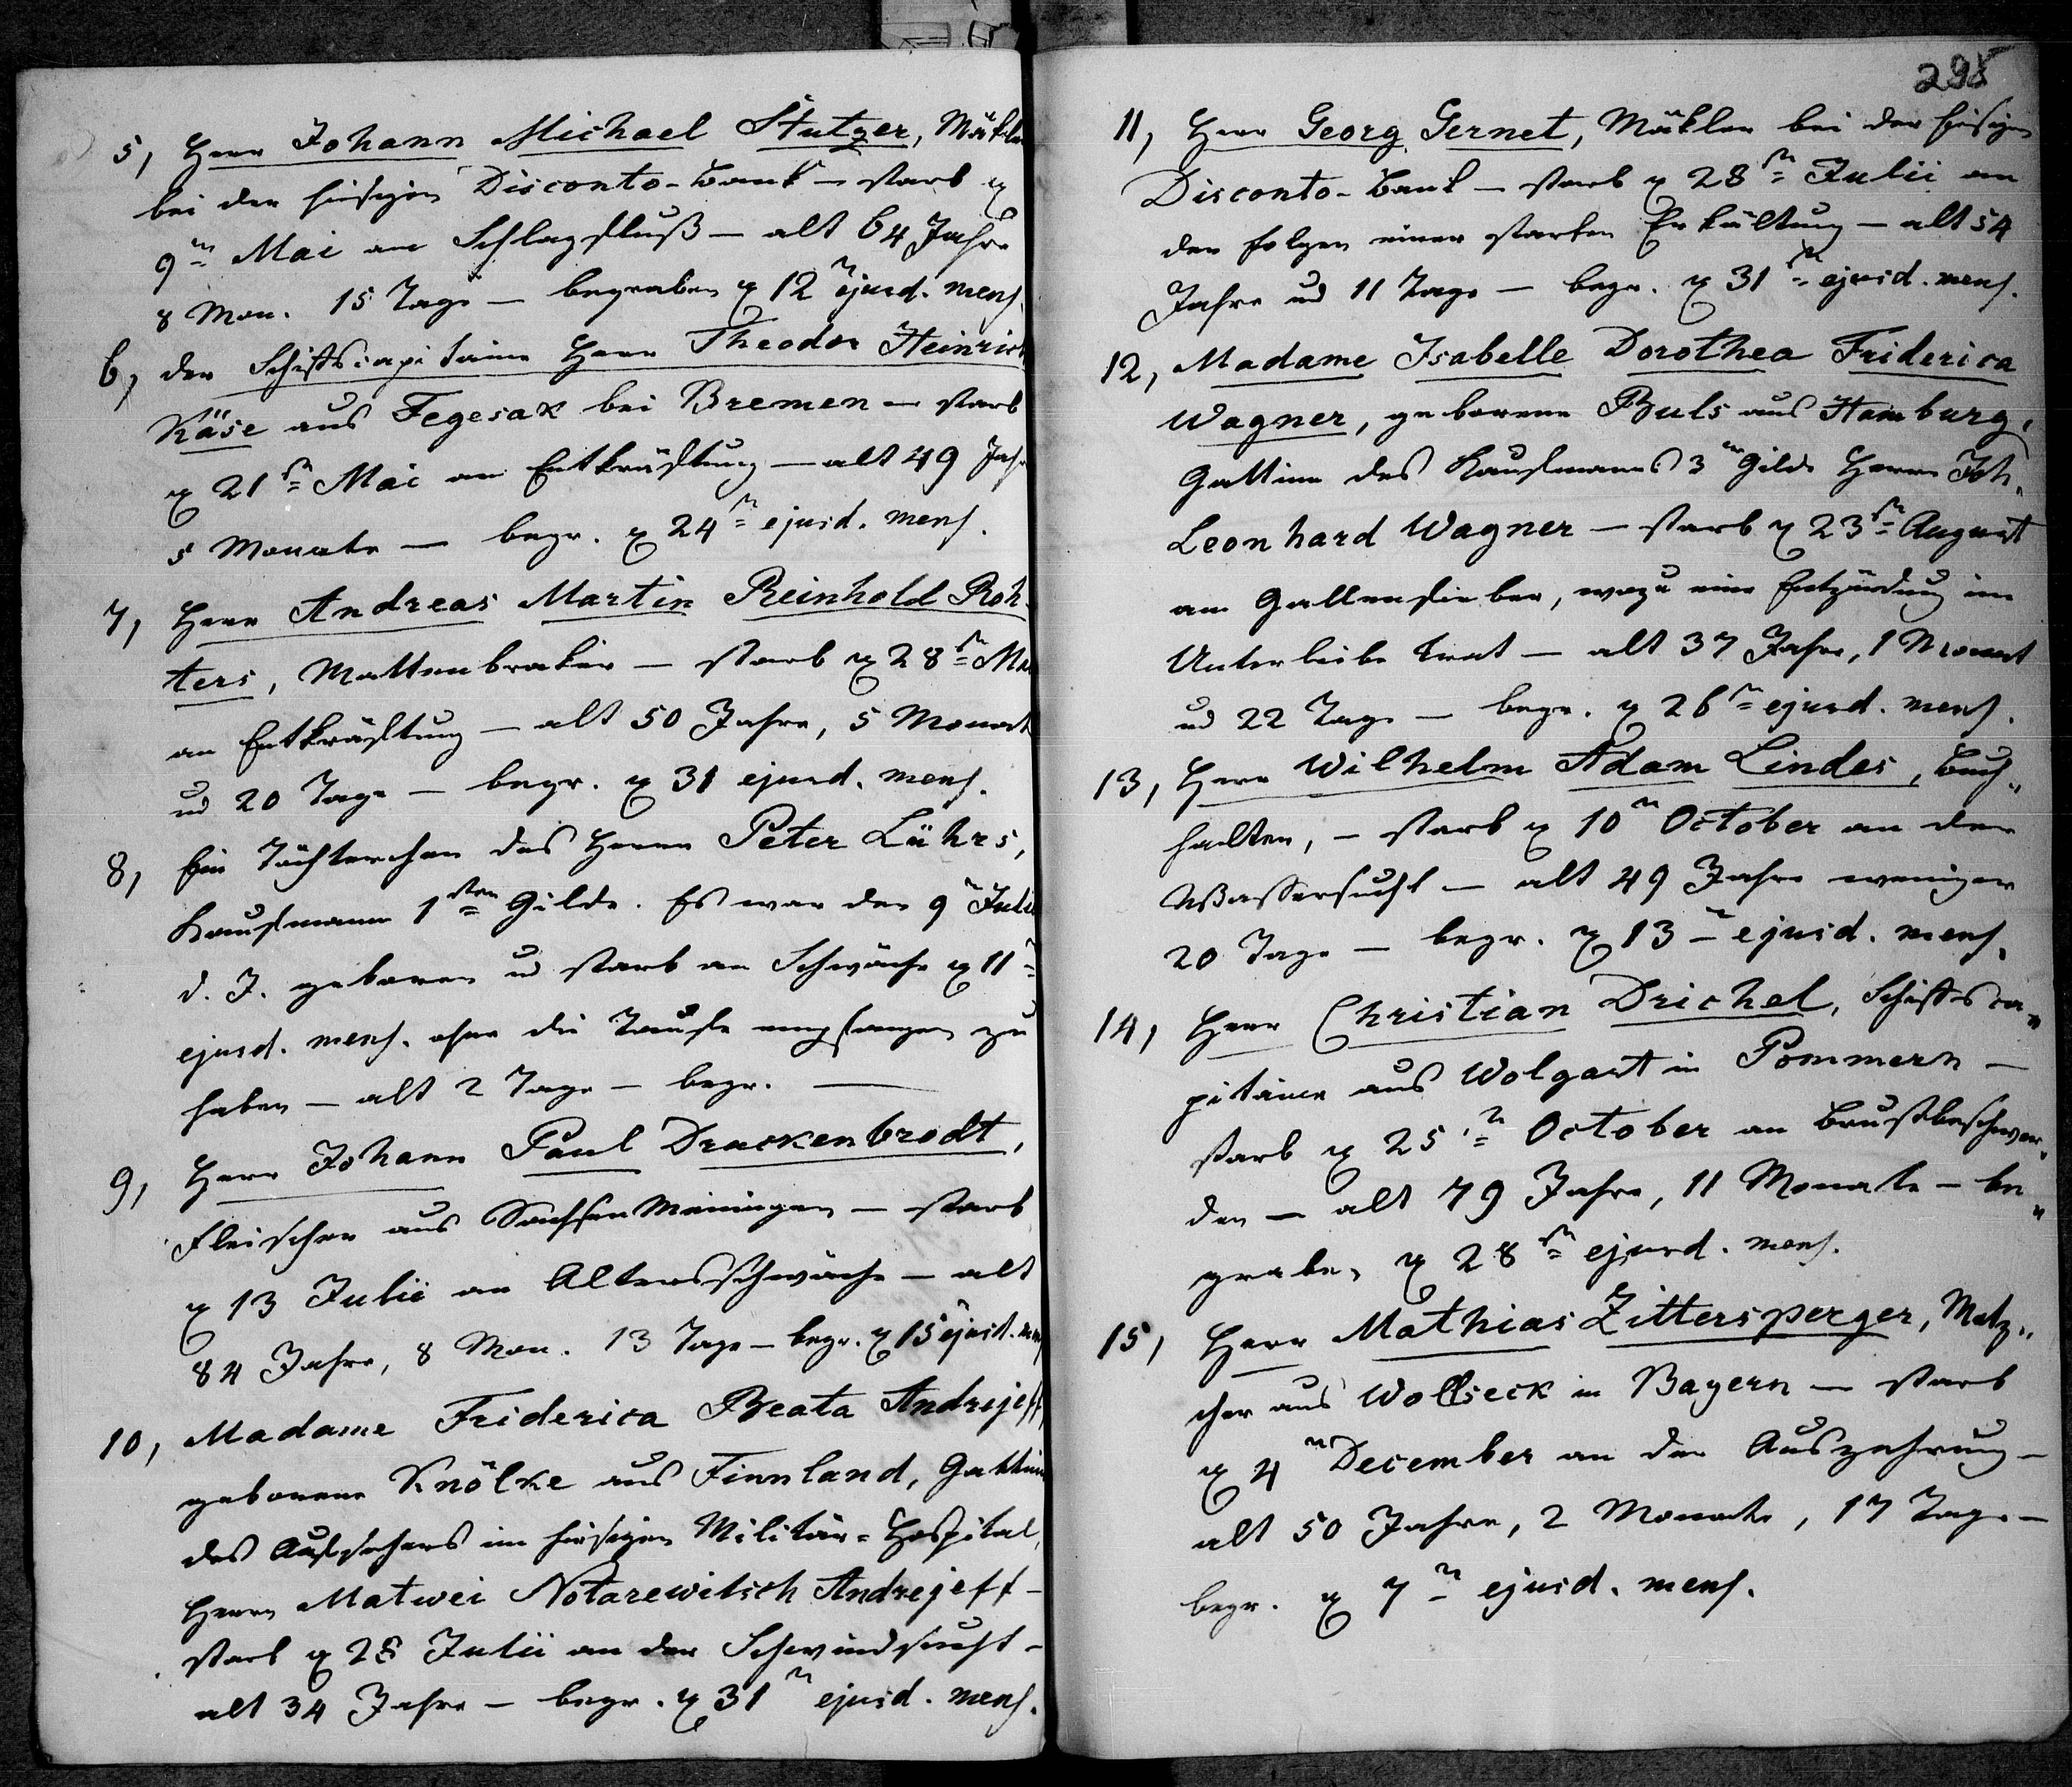 5, Herr Johann Michael Stutzer, Mäkler
bei der hiesigen Disconto-Bank — starb d.
9ten Mai am Schlagfluß — alt 64 Jahre
8 Mon. 15 Tage — begraben d. 12n ejusd. mens.
6, der Schiffscapitaine Herr Theodor Heinrich
Käse aus Fegesak bei Bremen — starb
d. 21sn Mai an Entkräftung — alt 49 Jahr
5 Monate — begr. d. 24sn ejusd. mens.
7, Herr Andreas Martin Reinhold Roh-
ters, Mattenbraker — starb d. 28sn Mai
an Entkräftung — alt 50 Jahre, 5 Monate
ud 20 Tage — begr. d. 31 ejusd. mens.
8, Ein Töchterchen des Herrn Peter Lührs,
Kaufmann 1sten Gilde. Es war den 9n Julii
d. J. geboren ud starb an Schwäche d. 11n
ejusd. mens. ohne die Taufe empfangen zu
haben — alt 2 Tage — begr. —
9, Herr Johann Paul Drackenbrodt,
Fleischer aus Sachsen Meiningen — starb
d. 13 Julii an Altersschwäche — alt
84 Jahre, 8 Mon. 13 Tage — begr. d. 15 ejusd. mens
10, Madame Friderica Beata Andrejeff
geborene Knölke aus Finnland, Gattin
des Aufsehers im hiesigen Militär-Hospital,
Herrn Matwei Notarewitsch Andrejeff —
starb d. 28 Julii an der Schwindsucht —
alt 34 Jahre — begr. d. 31n ejusd. mens.
295
11, Herr Georg Gernet, Mäkler bei der hiesigen
Disconto-Bank — starb d. 28sn Julii an
den Folgen einer starken Erkältung — alt 54
Jahre ud 11 Tage — begr. d. 31sn ejusd. mens.
12, Madame Isabelle Dorothea Friderica
Wagner, geborene Buls aus Hamburg,
Gattinn des Kaufmanns 3ter Gilde Herrn Joh.
Leonhard Wagner — starb d. 23sn August
am Gallenfieber, wozu eine Entzündung im
Unterleibe trat — alt 37 Jahre, 1 Monat
ud 22 Tage — begr. d. 26sn ejusd. mens.
13, Herr Wilhelm Adam Lindes, Buch„
halter, — starb d. 10n October an der
Wassersucht — alt 49 Jahre weniger
20 Tage — begr. d. 13n ejusd. mens.
14, Herr Christian Drichel, Schiffsca„
pitaine aus Wolgast in Pommern —
starb d. 25sn October an Brustbeschwer„
den — alt 79 Jahre, 11 Monate — be„
graben d. 28sn ejusd. mens.
15, Herr Mathias Zittersperger, Metz„
cher aus Wollseck in Bayern — starb
d. 4n December an der Auszehrung —
alt 50 Jahre, 2 Monate, 17 Tage —
begr. d. 7n ejusd. mens.